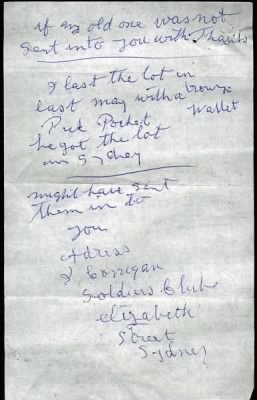 if my old one was not
sent into you with Thanks
I last the lot in
last may with a brown
wallet
Pick Pocket
he got the lot
in Sydney
might have sent
them in to
you
Adress
J Corrigan
Soldiers Club
elizabeth
Street
Sydney